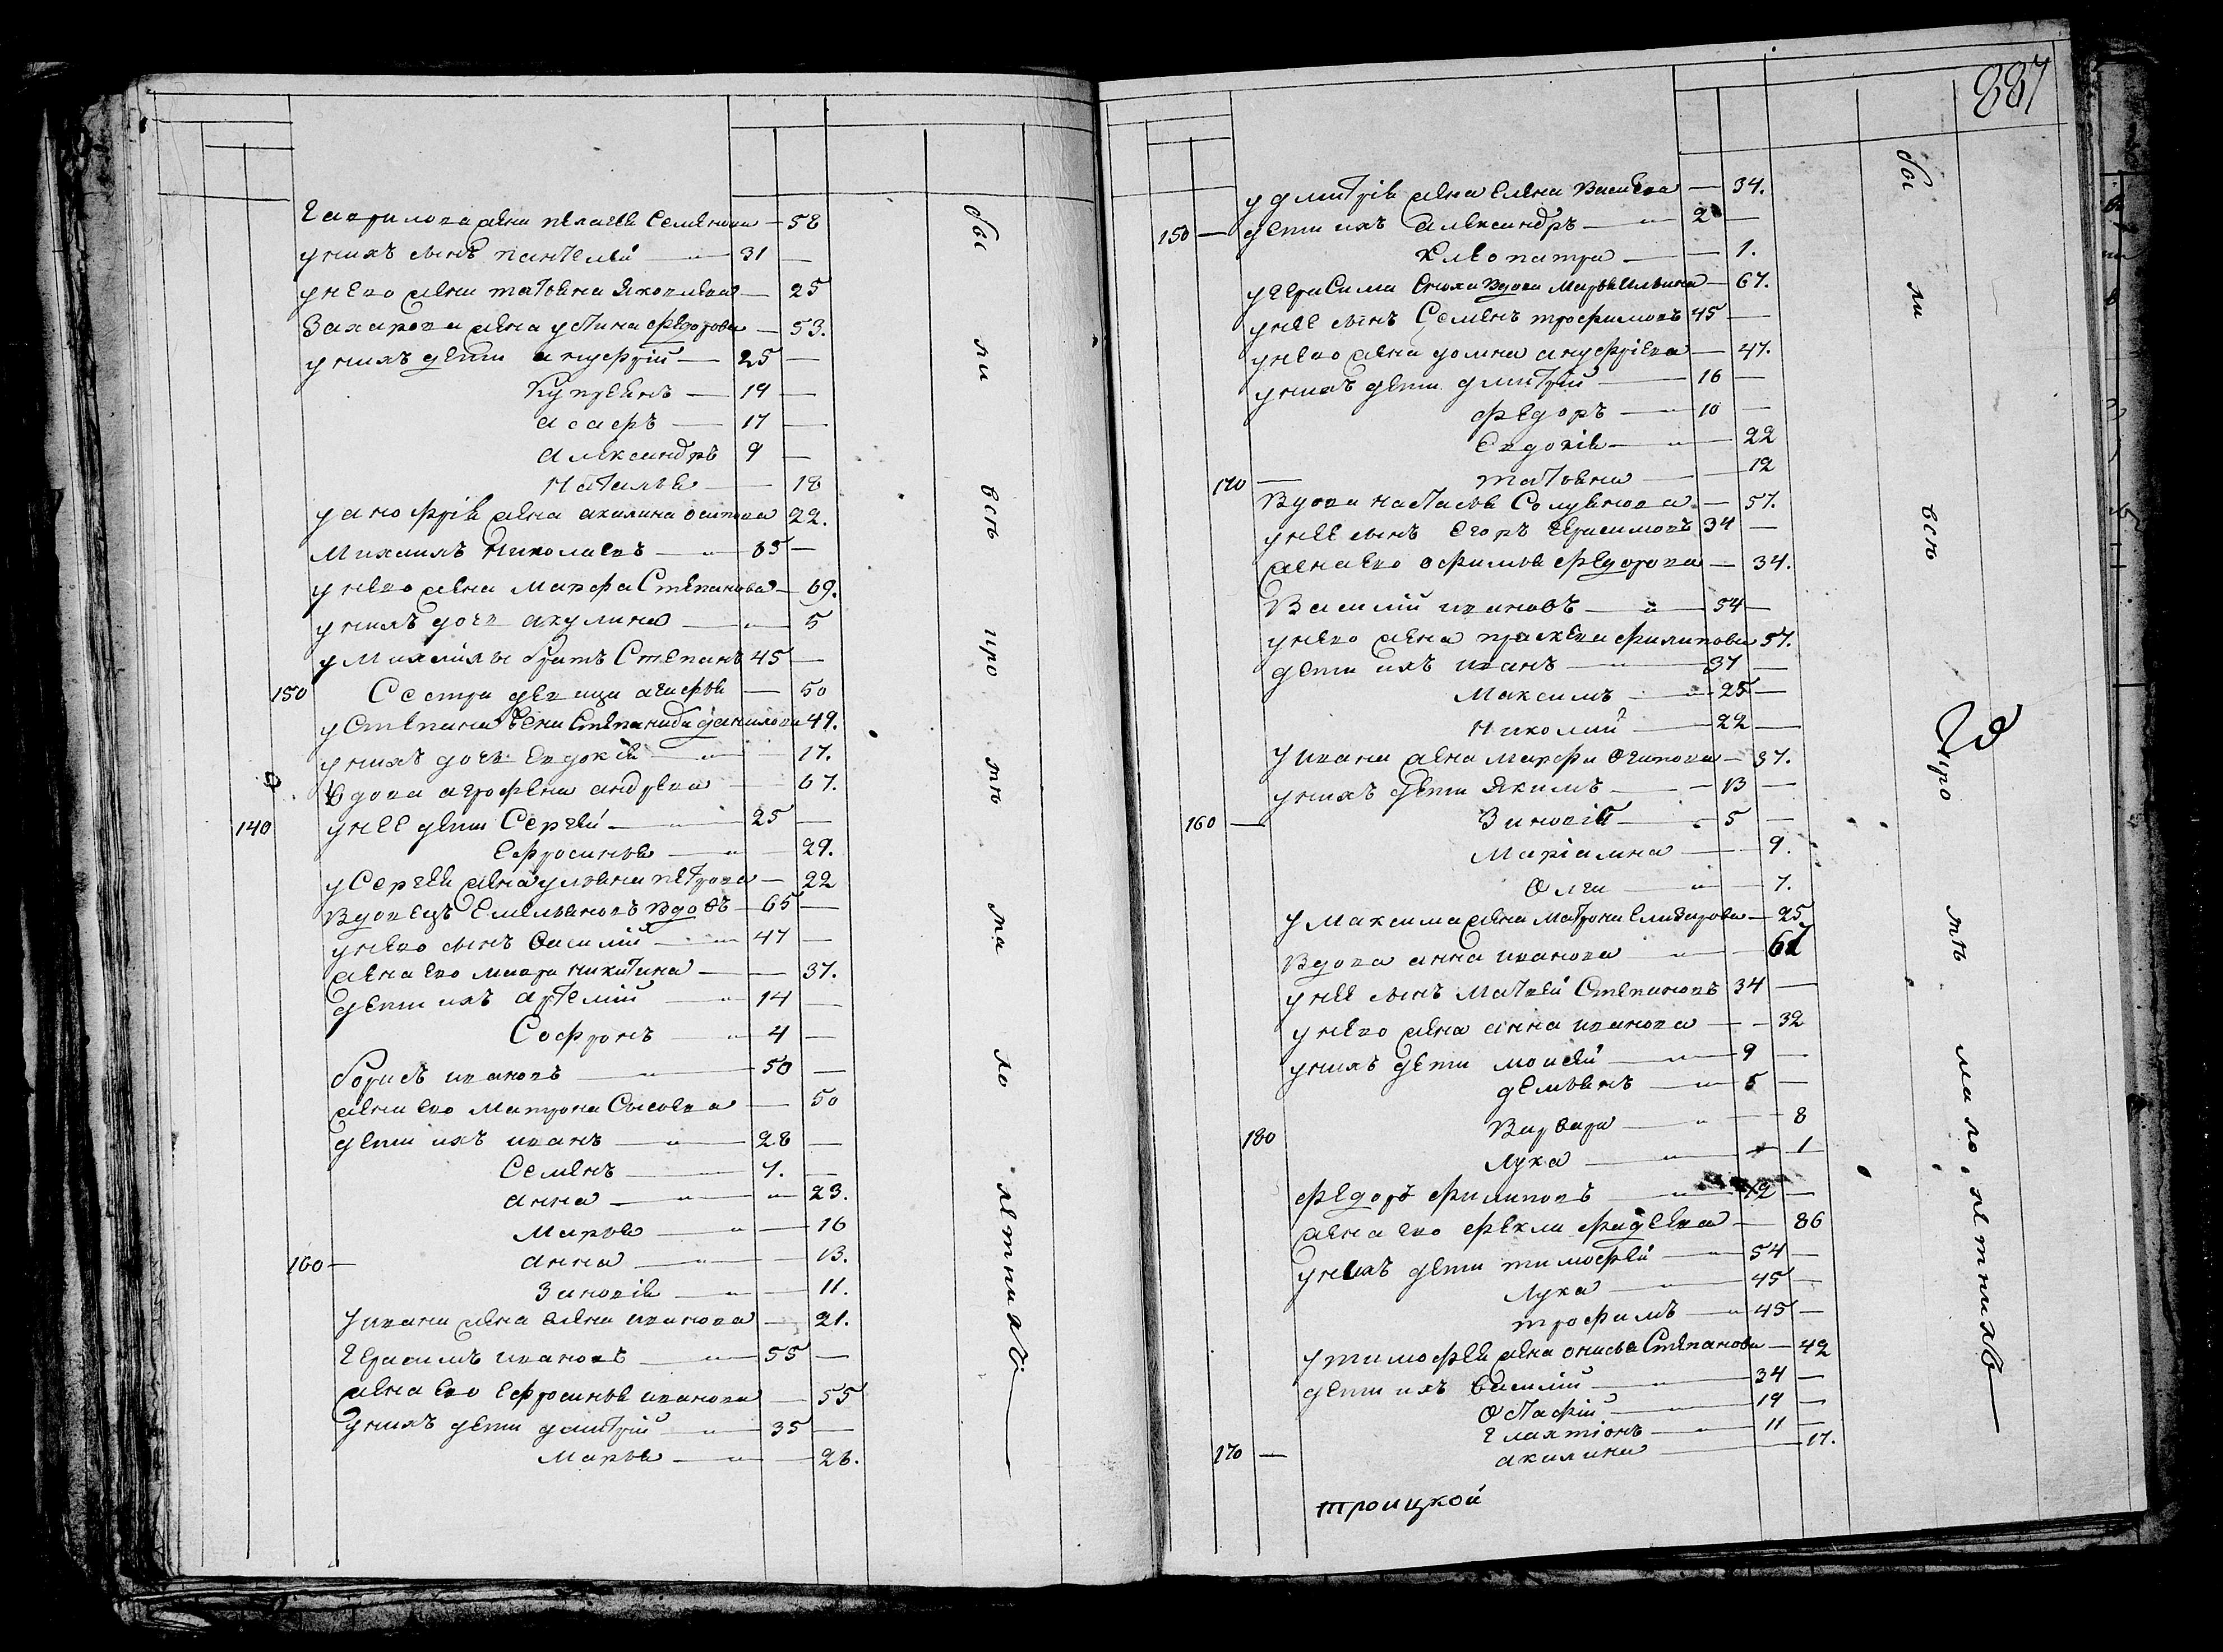 Гаврилова жена пелагея Семенова — 58
у нихъ сынъ пантелей — 31
у него жена татьяна Яковлева — 25
Захарова жена устина федорова — 53.
у нихъ дети ануфрій — 25
Купреянъ — 19
асафъ — 17
александръ 9
Наталья — 18
у анофрія жена акилина осипова 22.
Михаилъ Николаевъ — 65
у него жена Марфа Степанова — 69.
у нихъ дочь акулина — 5
у Михаила братъ Степанъ 45
150 Сестра девица агафья — 50
у Степана жена Степанида данилова 49.
у нихъ дочь евдокія — 17.
Вдова аграфена андреева — 67.
140 у нее дети Сергей — 25
Ефросинья — 29.
у Сергея жена ульяна петрова — 22
Вдовецъ Емельяновъ вдовъ — 65
у него сынъ василій — 47
жена его мавра никитина — 37.
дети ихъ артемій — 14
Софронъ — 4
борисъ ивановъ — 50
жена его матрона Сысоева — 50
дети ихъ иванъ — 28
Семенъ — 7.
анна — 23.
Марья — 16
160 — анна — 13.
Зиновія — 11.
У ивана жена елена иванова — 21.
Герасимъ ивановъ — 55
жена его ефросинья иванова — 55
у нихъ дети дмитрій — 35
Марья — 26.
бы ли всѣ про тѣ ма ло летнихъ
887
у дмитрія жена елена Васильева — 34.
150 — дети ихъ александръ — 2
Клеопатра — 1.
у герасима сноха вдова Марья ильина — 67.
у нее сынъ Семенъ трофимовъ 45
у него жена домна ануфріева — 47.
у нихъ дети дмитрій — 16
федоръ — 10
Евдокія — 22
170 — татьяна — 12
Вдова настасья — 57.
у нее сынъ егоръ герасимовъ 34
жена его офимья федорова — 34.
Василій ивановъ — 54
у него жена прасковья филипова 57.
дети ихъ иванъ — 37
Максимъ — 25
Николай — 22
У ивана жена марфа осипова — 37.
у нихъ дети Якимъ — 13
160 — Зиновій — 5
Маріамна — 9.
Олга — 7.
у Максима жена матрона елизарова — 25
Вдова анна иванова — 61
у нее сынъ матвей Степановъ 34
у него жена анна иванова — 32
у нихъ дети моисей — 9
демьянъ — 5
Варвара — 8
180 Лука — 1
федоръ филиповъ — 72
жена его фекла фадеева — 86
у нихъ дети тимофей — 54
Лука — 45
трофимъ — 45
у тимофея жена онисья Степанова — 42
дети ихъ василій — 34
Остафій — 19
Галактіонъ — 11
170 — акилина — 17.
троицкой
бы ли всѣ про тѣ ма ло летнихъ